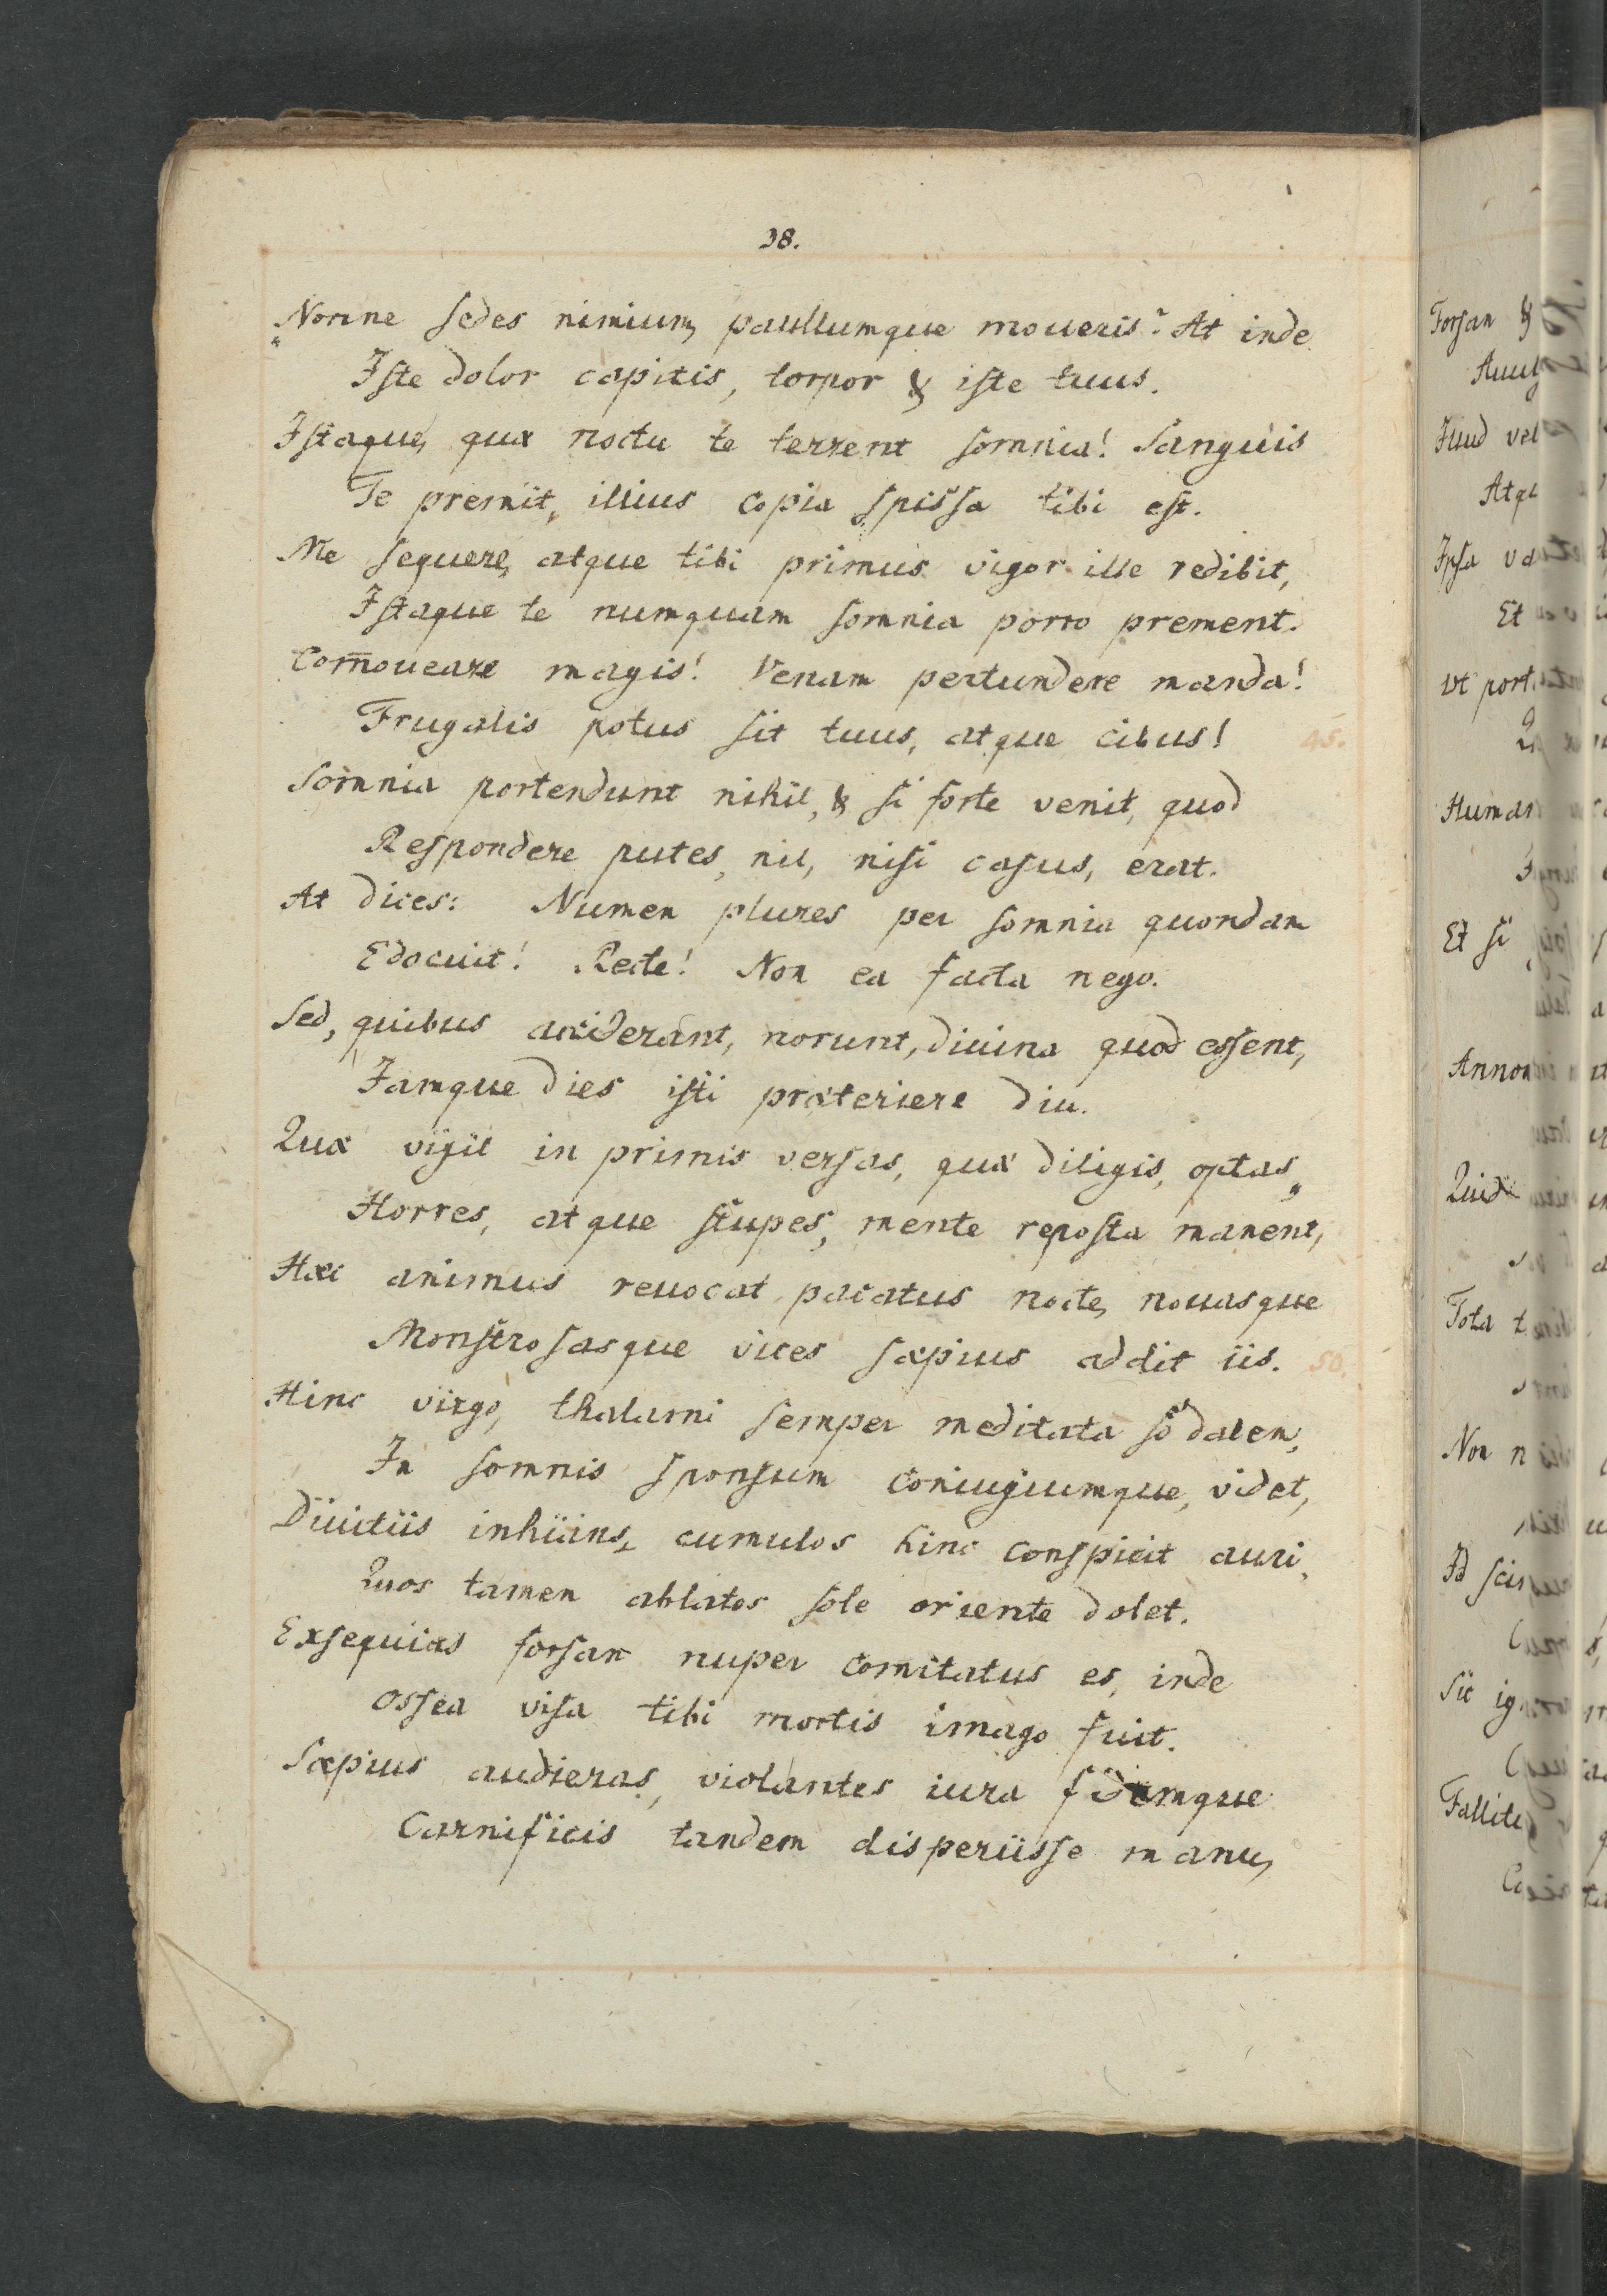 38.
Nonne sedes nimium, paullumque moueris? At inde
Iste dolor capitis, torpor & iste tuus.
Istaque, quæ noctu te terrent somnia! Sanguis
Te premit, illius copia spissa tibi est.
Me sequere, atque tibi primus vigor ille redibit,
Istaque te numquam somnia porro prement.
Com̄oueare magis! Venam pertundere manda!
Frugalis potus sit tuus, atque cibus! 45.
Somnia portendunt nihil, & si forte venit, quod
Respondere putes, nil, nisi casus, erat.
At dices: Numen plures per somnia quondam
Edocuit! Recte! Non ea facta nego.
Sed, quibus acciderant, norunt, diuina quod essent,
Jamque dies isti præteriere diu.
Quæ vigil in primis versas, quæ diligis, optas,
Horres, atque stupes, mente reposta manent,
Hæc animus reuocat pacatus nocte, nouasque
Monstrosasque vices sæpius addit iis. 50.
Hinc virgo, thalami semper meditata sodalem,
In somnis sponsum coniugiumque, videt,
Diuitiis inhiins, cumulos hinc conspicit auri,
Quos tamen ablatos sole oriente dolet.
Exsequias forsan nuper comitatus es, inde
Ossea visa tibi mortis imago fuit.
Sæpius audieras, violantes iura fidemque
Carnificis tandem disperiisse manu,
Forsan &
Iuud vel
Atq
Ipsa
Et
Vt port
Human
Et si
Annon
Quid
Tota t
Non n
Id scis
Sic ig
Fallit